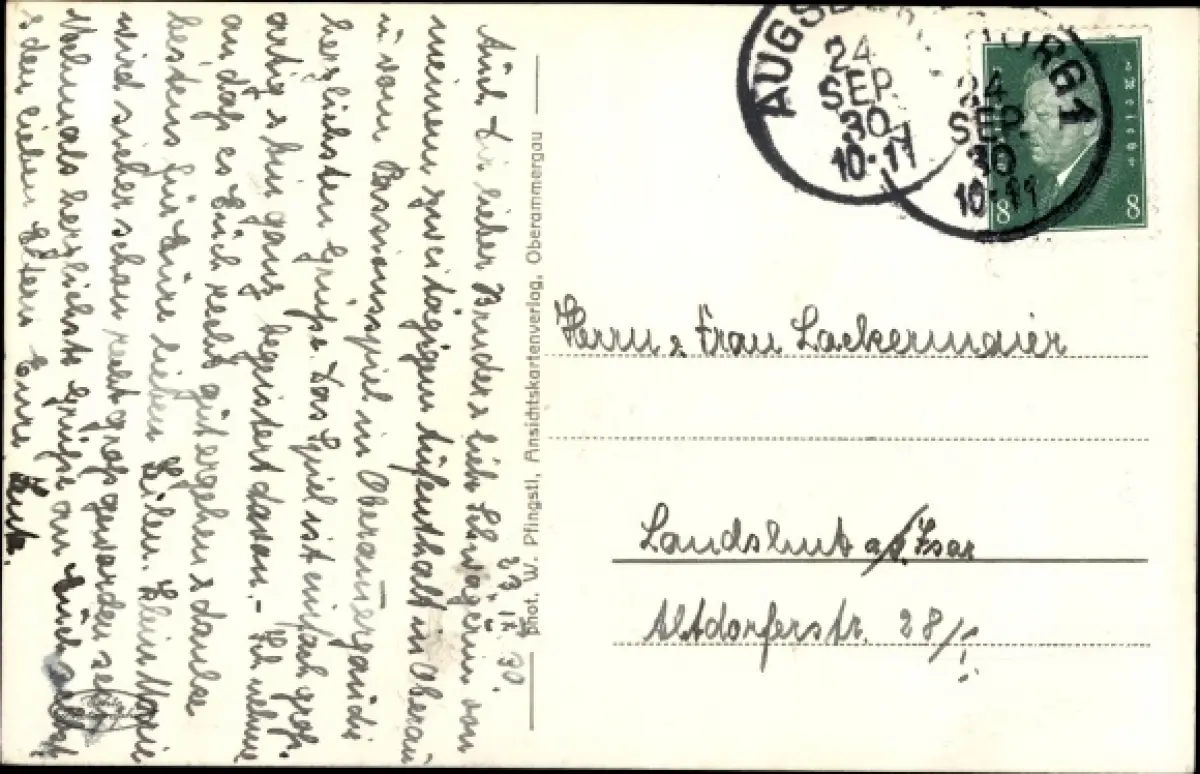 AUGSBURG 1
24
SEP.
30
10-11
24
SEP.
30
10-11
8
8
23. IX. 30.
Auch Dir lieber Bruder & liebe Schwägerin von
meinem zweitägigen Aufenthalt in Oberau
u. vom Passionsspiel in Oberammergau die
herzlichsten Grüße. Das Spiel ist einfach groß-
artig & bin ganz begeistert davon. - Ich nehme
an daß es Euch recht gut ergehen & danke
bestens für Eure lieben Zeilen. Klein Marie
wird sicher schon recht groß geworden sein
Nochmals herzlichste Grüße an Euch selbst
& den lieben Eltern Eure
phot. W. Pfingstl, Ansichtskartenverlag, Oberammergau
Herrn & Frau Lackermaier
Landshut a/d. Isar
Altdorferstr. 28/I.